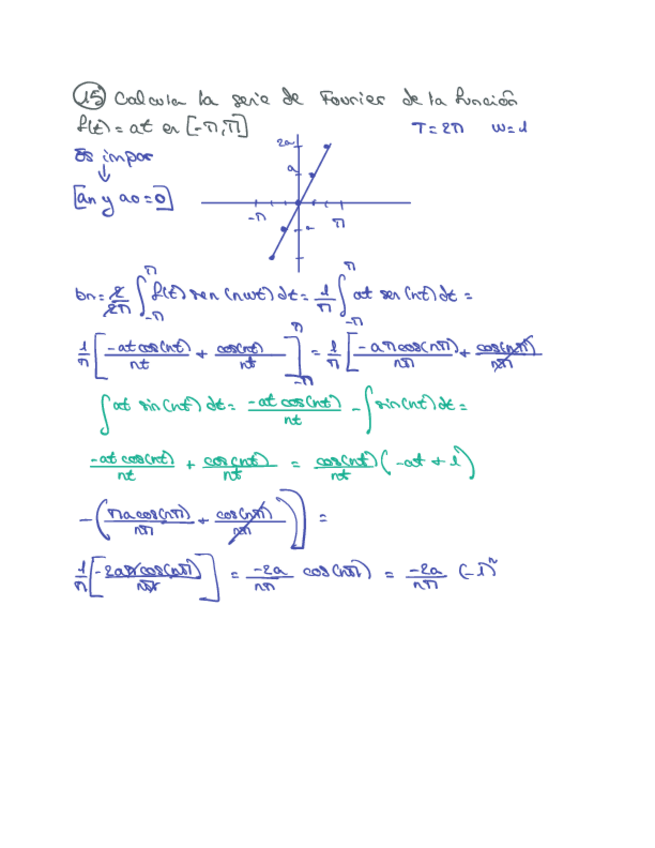 15 Calcula la serie de Fourier de la función
f(t) = at en [-π, π] T = 2π w = 1
Es impar
↓
[an y ao = 0]
2a
a
-π π
bn = 2/2π ∫_{-π}^{π} f(t) sen (nwt) dt = 1/π ∫_{-π}^{π} at sen (nt) dt =
1/π [ -at cos(nt)/nt + cos(nt)/nt ]_{-π}^{π} = 1/π [ -aπ cos(nπ)/nπ + cos(nπ)/nπ
∫ at sin(nt) dt = -at cos(nt)/nt - ∫ sin(nt) dt =
-at cos(nt)/nt + cos(nt)/nt = cos(nt)/nt (-at + 1)
- ( πa cos(nπ)/nπ + cos(nπ)/nπ ) ] =
1/π [ -2aπ cos(nπ)/nπ ] = -2a/nπ cos(nπ) = -2a/nπ (-1)^n